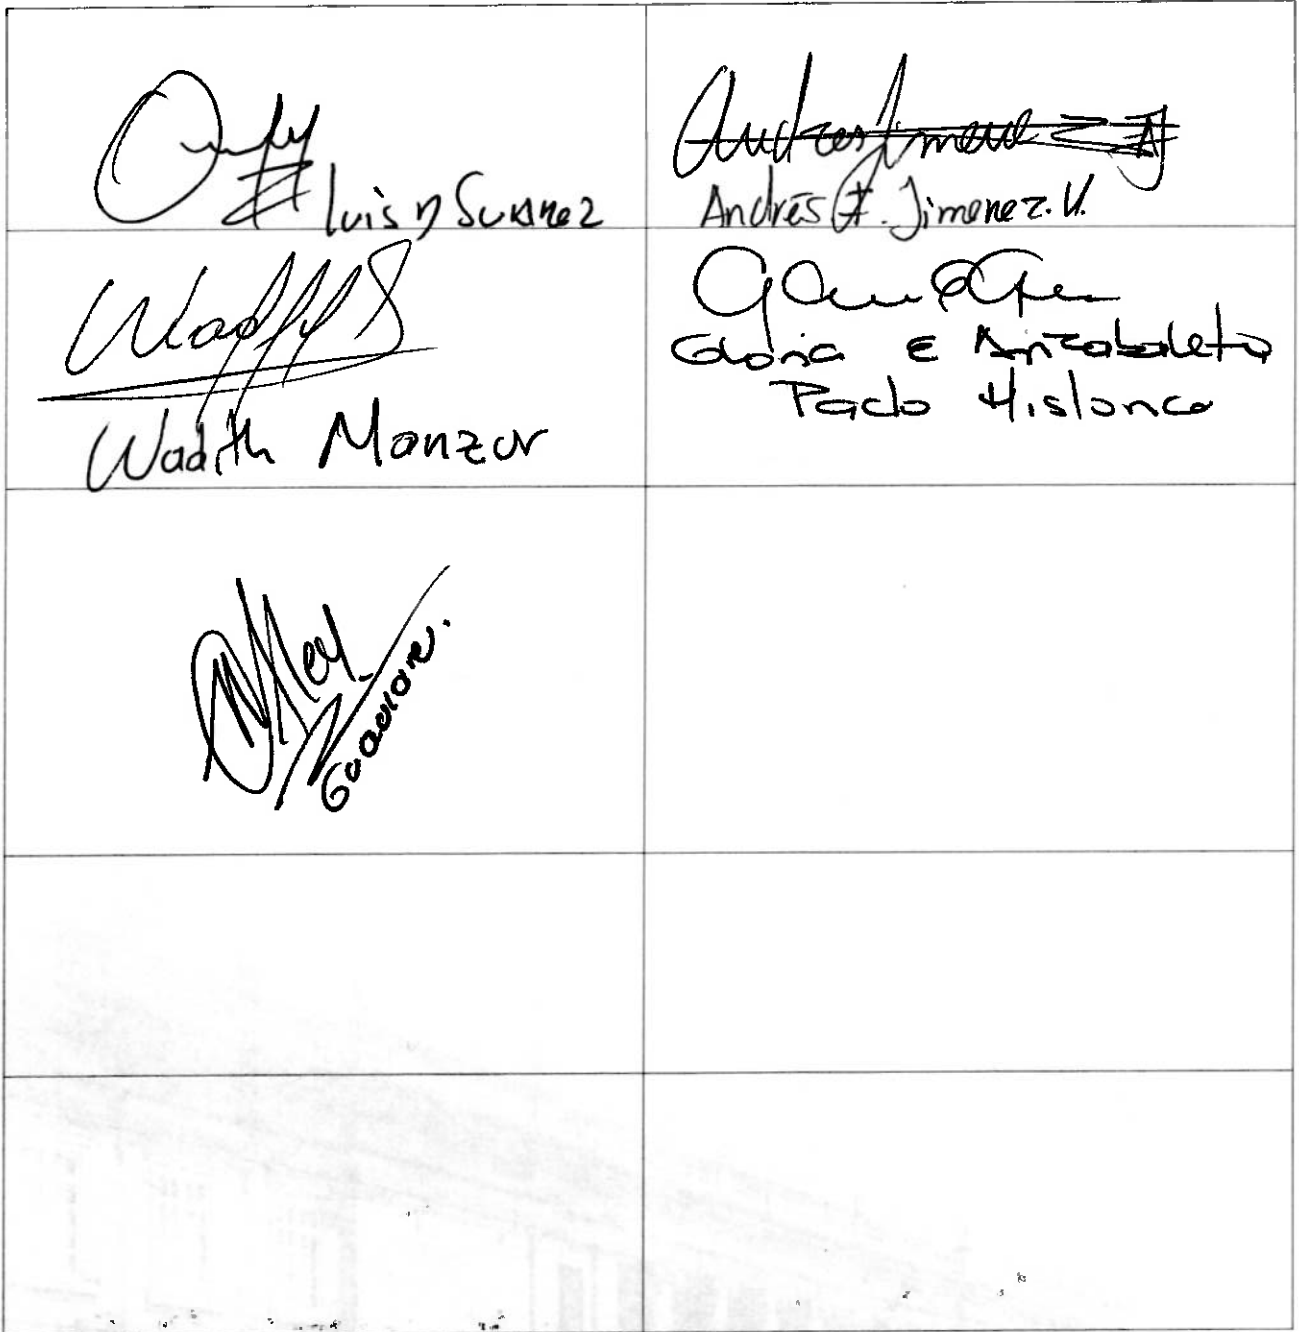 Luis D Suarez
Andrés F. Jimenez. V.
Wadith Manzur
Gloria E Arizabaleta
Pacto Historico
Guaviare.